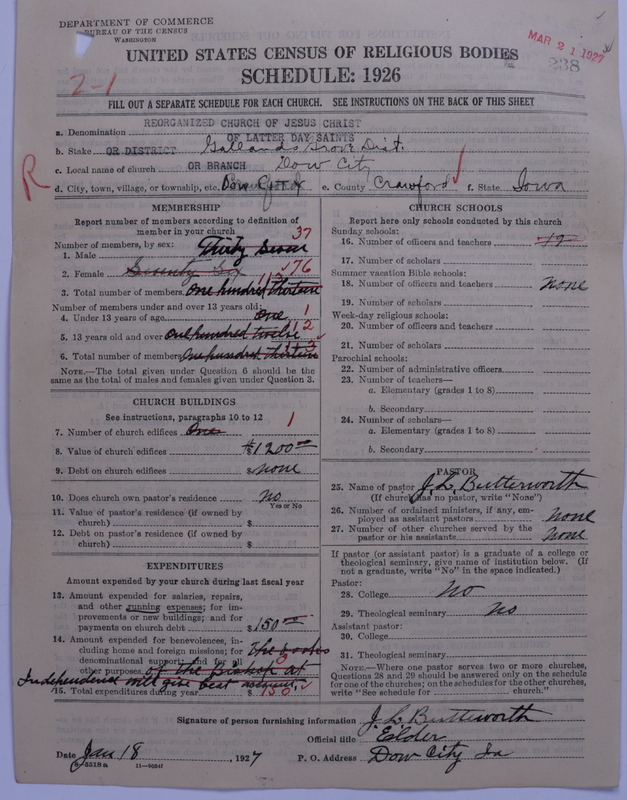 DEPARTMENT OF COMMERCE
BUREAU OF THE CENSUS
WASHINGTON
MAR 21 1927
238
UNITED STATES CENSUS OF RELIGIOUS BODIES
SCHEDULE: 1926
2-1
FILL OUT A SEPARATE SCHEDULE FOR EACH CHURCH. SEE INSTRUCTIONS ON THE BACK OF THIS SHEET
REORGANIZED CHURCH OF JESUS CHRIST
a. Denomination OF LATTER DAY SAINTS
b. Stake OR DISTRICT Gallands Grove Dist.
c. Local name of church OR BRANCH Dow City
R
d. City, town, village, or township, etc. Dow City e. County Crawford f. State Iowa
MEMBERSHIP
Report number of members according to definition of
member in your church
Number of members, by sex:
1. Male Thirty Seven 37
2. Female Seventy Six 76
3. Total number of members One hundred Thirteen
Number of members under and over 13 years old:
4. Under 13 years of age One 1
5. 13 years old and over One hundred twelve 112
6. Total number of members One hundred Thirteen 113
NOTE.—The total given under Question 6 should be
the same as the total of males and females given under Question 3.
CHURCH BUILDINGS
See instructions, paragraphs 10 to 12
7. Number of church edifices One 1
8. Value of church edifices $1200.00
9. Debt on church edifices $ none
10. Does church own pastor's residence No
Yes or No
11. Value of pastor's residence (if owned by
church) $
12. Debt on pastor's residence (if owned by
church) $
EXPENDITURES
Amount expended by your church during last fiscal year
13. Amount expended for salaries, repairs,
and other running expenses; for im-
provements or new buildings; and for
payments on church debt $150.00
14. Amount expended for benevolences, in-
cluding home and foreign missions; for
denominational support; and for all
other purposes The books
of the Bishop at
Independence will give best
15. Total expenditures during year $ 150
CHURCH SCHOOLS
Report here only schools conducted by this church
Sunday schools:
16. Number of officers and teachers 12
17. Number of scholars
Summer vacation Bible schools:
18. Number of officers and teachers none
19. Number of scholars
Week-day religious schools:
20. Number of officers and teachers
21. Number of scholars
Parochial schools:
22. Number of administrative officers
23. Number of teachers—
a. Elementary (grades 1 to 8)
b. Secondary
24. Number of scholars—
a. Elementary (grades 1 to 8)
b. Secondary
PASTOR
25. Name of pastor J. L. Butterworth
(If church has no pastor, write "None")
26. Number of ordained ministers, if any, em-
ployed as assistant pastors none
27. Number of other churches served by the
pastor or his assistants none
If pastor (or assistant pastor) is a graduate of a college or
theological seminary, give name of institution below. (If
not a graduate, write "No" in the space indicated.)
Pastor:
28. College No
29. Theological seminary No
Assistant pastor:
30. College
31. Theological seminary
NOTE.—Where one pastor serves two or more churches,
Questions 28 and 29 should be answered only on the schedule
for one of the churches; on the schedules for the other churches,
write "See schedule for church."
Signature of person furnishing information J. L. Butterworth
Official title Elder
Date Jan 18, 1927 P. O. Address Dow City Ia
8-5518a 11-9684f